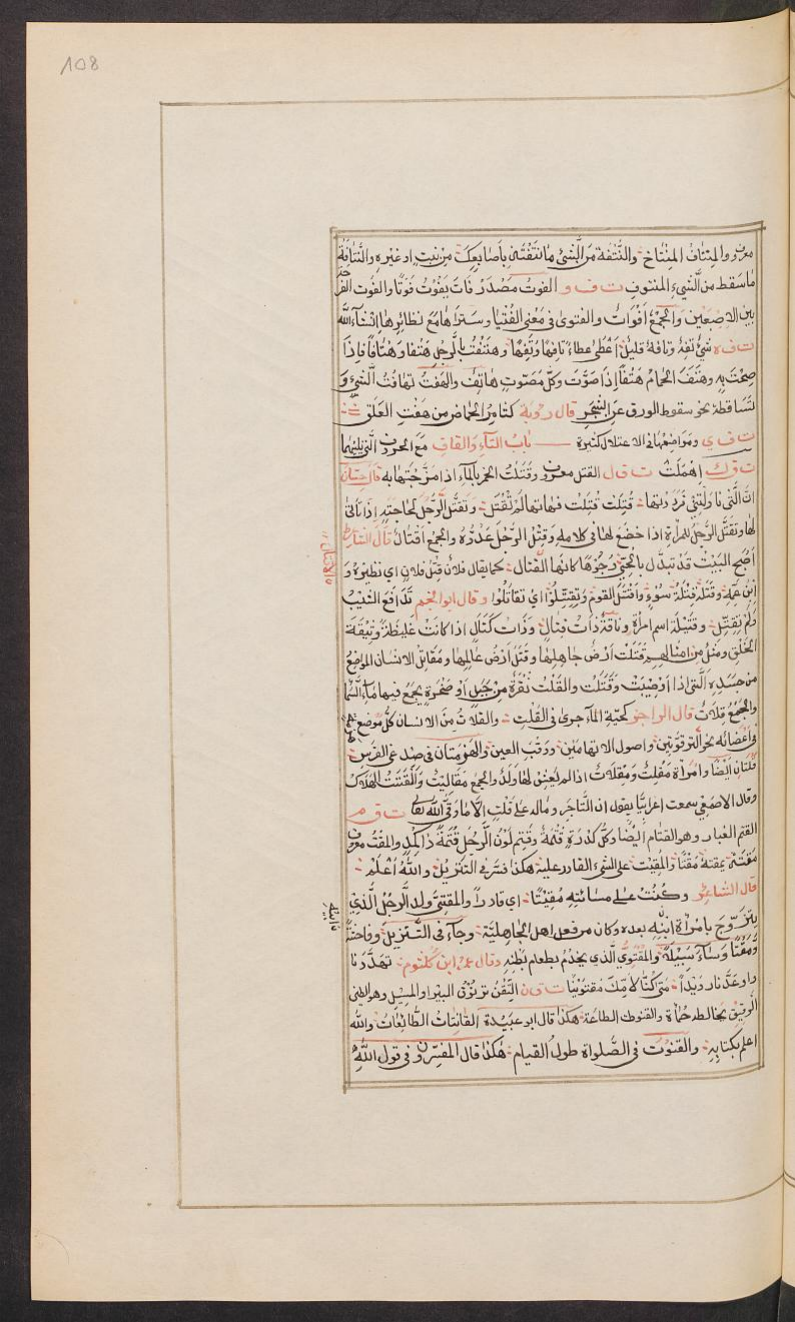 108
معروف والمنتاف المنتاخ والنُّتفة من الشئ ما نتفتَه باصابعك من نبت او غيره والنتافة
ما سقط من الشيء المنتوف ت ف و الفوت مصدر فات يفوت فوتًا والفوت الفرجة
بين الاصبعين والجمع افوات والفتوى فى معنى الفتيا وستراها مع نظائرها ان شاء الله
ت ف ه شئ تفه وتافه قليل اعطى عطاء تافهًا وتفهًا وهتفتُ بالرجل هتفا وهتافًا فاذا
صِحتَ به وهتف الحمام هتفًا اذا صوّت وكل مصوّت هاتف والهفت تهافت الشئ و
تساقطه نحو سقوط الورق عن الشجر قال رؤبة كثامر الحماض من هفت العلق
ت ف ي ومواضعها فى الاعتلال كثيرة باب التاء والقاف مع الحروف التى تليهما
ت ق ك اهملت ت ق ل القتل معروف وقتلت الخمر بالماء اذا مزجتها به قال حسان
ان التى ناولتنى فرددتها قُتِلت قُتِلت فهاتها لم تُقتل وتقتّل الرجل لحاجته اذا تأتى
لها وتقتل الرجل للمراة اذا خضع لها فى كلامه وقِتل الرجل عدوّه والجمع اقتال قال الشاعر
اصبح البيت قد تبدل بالحيّ وجوهًا كانها القتال كما يقال فلان قِتل فلان اي نظيره و
ابن عمه وقتله قِتلة سوء واقتتل القوم وتقتّلوا اي تقاتلوا وقال ابو النجم تدافع الشيب
ولم تقتّل وقتيلة اسم امرأة وناقة ذات قتال وذات كتال اذا كانت غليظة وثيقة
الخلق ومثل من امثالهم قتلت ارض جاهلها وقتل ارض عالمها ومقاتل الانسان المواضع
من جسده التى اذا اصيبت وقتلت والقلت نقرة من جبل او صخرة يجمع فيها ماء السماء
والجمع قلات قال الراجز كحيّة الماء جرى فى القلت والقلات من الانسان كل موضع
فى اعضائه نحو الترقوتين واصول الابهامين ووقب العين والهزمتان فى صدغى الفرس
قلتان ايضًا وامرأة مقلت ومقلات اذا لم يعش لها ولد والجمع مقاليت والقلت الهلاك
وقال الاصمعى سمعت اعرابيًا يقول ان التاجر وماله على قلت الّا ما وقى الله تعالى ت ق م
القتم الغبار وهو القتام ايضًا وكل كدرة قتمة وقتم لون الرجل قتمة والمقت معروف
مقته يمقته مقتًا والمقيت على الشيء القادر عليه هكذا فسر فى التنزيل والله اعلم
قال الشاعر وكنت على مسائته مُقيتًا اي قادرًا والمقتى ولد الرجل الذى
يتزوج بامرأة ابيه بعده وكان من فعل اهل الجاهلية وجاء فى التنزيل وفاحشة
ومقتًا وساء سبيلا والمقتوى الذى يخدم بطعام بطنه وقال عمرو ابن كلثوم تهددنا
واوعدنا رويدًا متى كنا لامك مقتوينا ت ق ن التقن ترنوق البير او المسيل وهو الطين
الرقيق يخالطه حماة والقنوت الطاعة هكذا قال ابو عبيدة القانتات الطائعات والله
اعلم بكتابه والقنوت فى الصلواة طول القيام هكذا قال المفسرون فى قول الله